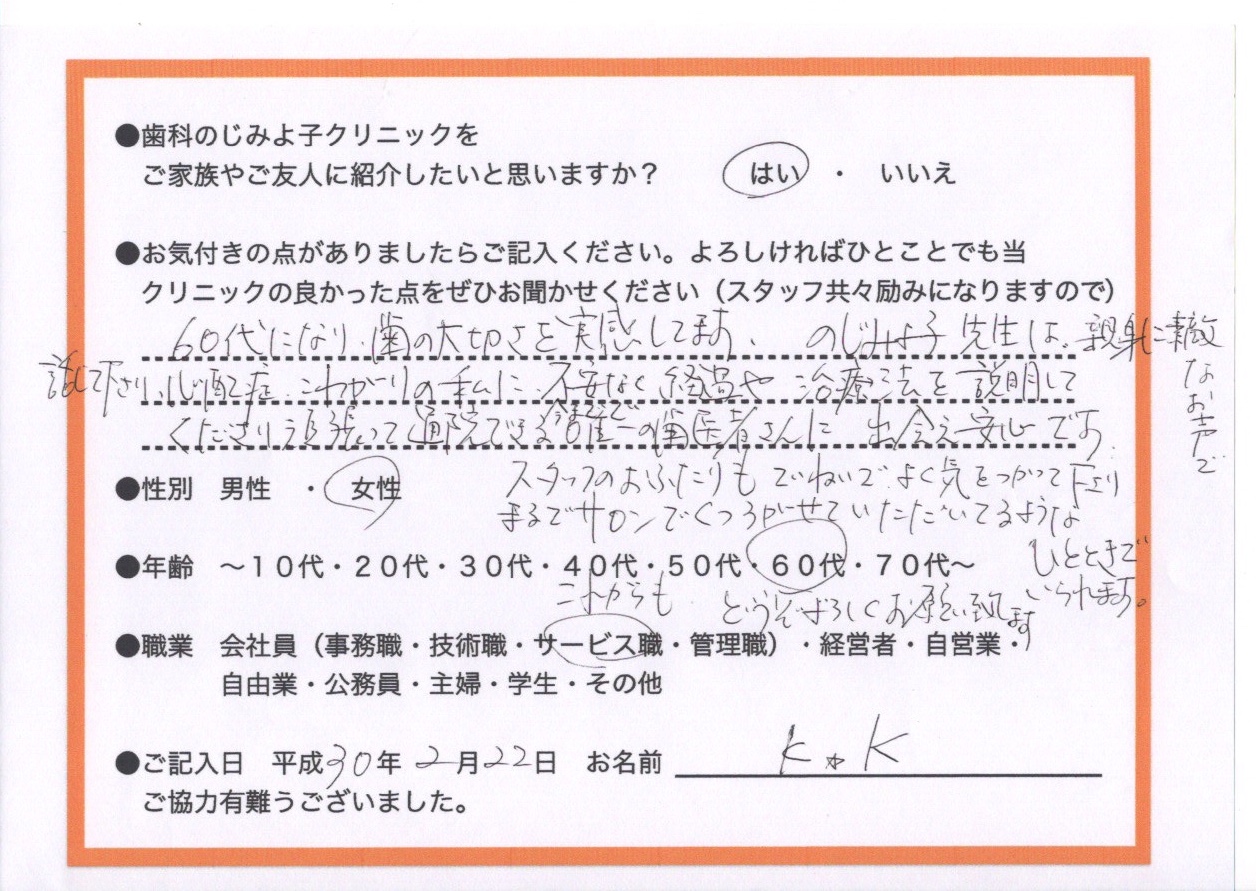 ●歯科のじみよ子クリニックを
ご家族やご友人に紹介したいと思いますか？ はい ・ いいえ
●お気付きの点がありましたらご記入ください。よろしければひとことでも当
クリニックの良かった点をぜひお聞かせください（スタッフ共々励みになりますので）
60代になり、歯の大切さを実感してます。 のじみよ子先生は、親身に
なお声で
話して下さり、心配症、こわがりの私に、不安なく経過や治療法を説明して
くださり頑張って通院できる今までで唯一の歯医者さんに 出会え安心です。
スタッフのおふたりもていねいでよく気をつかって下さり
まるでサロンでくつろがせていただいてるような
ひとときで
いられます。
これからも どうぞよろしくお願い致します
●性別 男性 ・ 女性
●年齢 〜１０代・２０代・３０代・４０代・５０代・６０代・７０代〜
●職業 会社員（事務職・技術職・サービス職・管理職）・経営者・自営業・
自由業・公務員・主婦・学生・その他
●ご記入日 平成30年 2月22日 お名前 K.K
ご協力有難うございました。